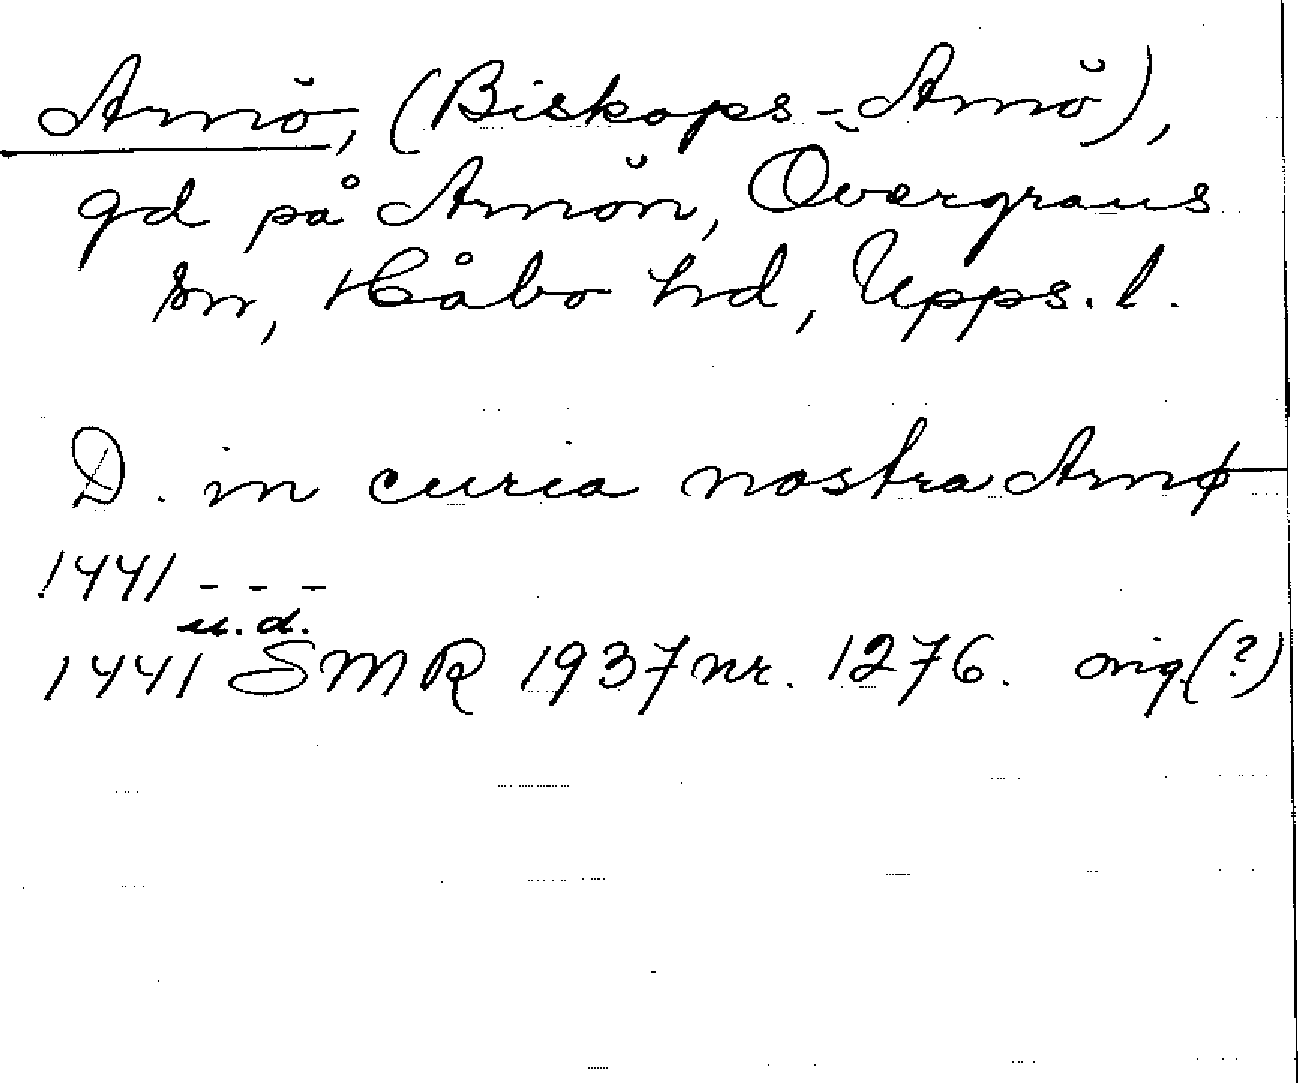 Arnö, (Biskops-Arnö),
gd på Arnön, Övergrans
sn, Håbo hd, Upps. l.
D. in curia nostra Arnø
1441 - - -
u.d.
1441 SMR 1937 nr. 1276. orig(?)